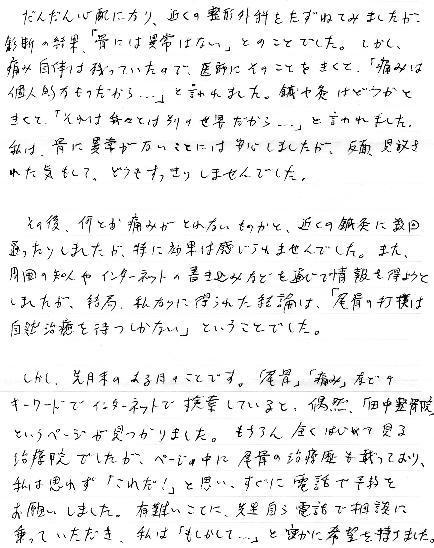 だんだん心配になり、近くの整形外科をたずねてみましたが、
診断の結果、「骨には異常はない」とのことでした。しかし、
痛み自体は残っていたので、医師にそのことをきくと、「痛みは
個人的なものだから…」と言われました。鍼や灸はどうかと
きくと、「それは我々とは別の世界だから…」と言われました。
私は、骨に異常がないことには安心しましたが、反面、見放さ
れた気もして、どうもすっきりしませんでした。
その後、何とか痛みがとれないものかと、近くの鍼灸に数回
通ったりしましたが、特に効果は感じられませんでした。また、
周囲の知人やインターネットの書き込みなどを通じて情報を得ようと
しましたが、結局、私なりに得られた結論は、「尾骨の打撲は
自然治癒を待つしかない」ということでした。
しかし、先月末のある日のことです。「尾骨」「痛み」などの
キーワードでインターネットで検索していると、偶然、「田中整骨院」
というページが見つかりました。もちろん全くはじめて見る
治療院でしたが、ページの中に尾骨の治療歴も載っており、
私は思わず「これだ！」と思い、すぐに電話で予約を
お願いしました。有難いことに、先生自ら電話で相談に
乗っていただき、私は「もしかして…」と密かに希望を持ちました。